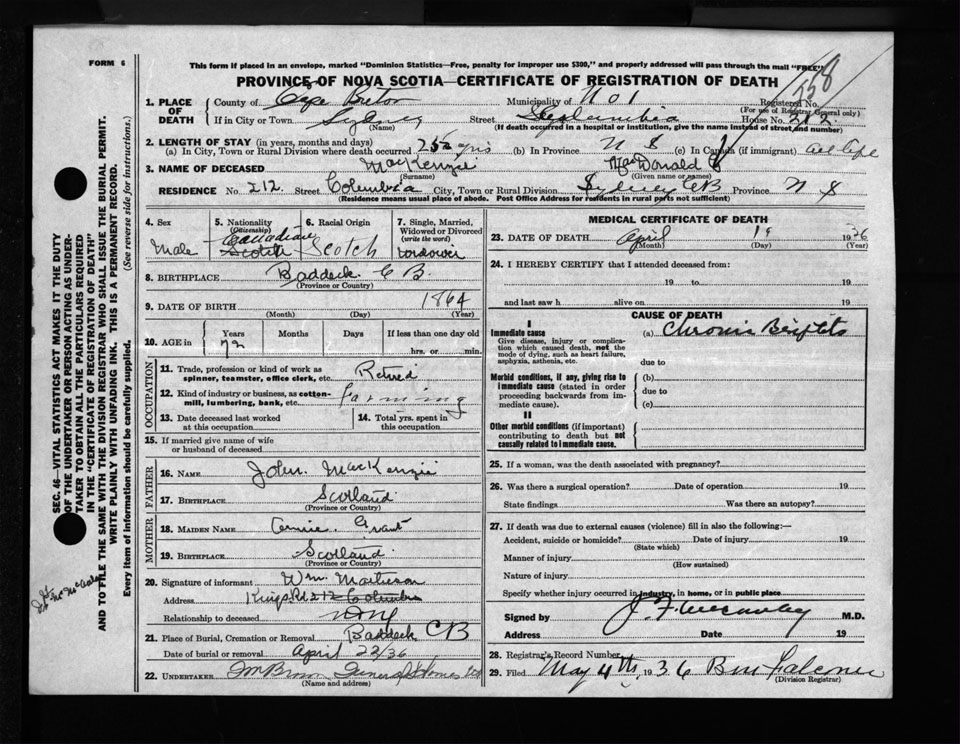 558
FORM 6
This form if placed in an envelope, marked "Dominion Statistics—Free, penalty for improper use $300," and properly addressed will pass through the mail "FREE."
PROVINCE OF NOVA SCOTIA—CERTIFICATE OF REGISTRATION OF DEATH
1. PLACE OF DEATH
County of Cape Breton Municipality of No 1 Registered No.
(For use of Registrar General only)
If in City or Town Sydney Street Columbia House No. 212
(Name) (If death occurred in a hospital or institution, give the name instead of street and number)
2. LENGTH OF STAY (in years, months and days)
(a) In City, Town or Rural Division where death occurred 25 yrs (b) In Province N S (c) In Canada (if immigrant) all life
3. NAME OF DECEASED MacKenzie MacDonald
(Surname) (Given name or names)
RESIDENCE No. 212 Street Columbia City, Town or Rural Division Sydney CB Province N S
(Residence means usual place of abode. Post Office Address for residents in rural parts not sufficient)
4. Sex
Male
5. Nationality
(Citizenship)
Canadian
Scotch
6. Racial Origin
Scotch
7. Single, Married, Widowed or Divorced
(write the word)
widower
8. BIRTHPLACE Baddeck C B.
(Province or Country)
9. DATE OF BIRTH 1864
(Month) (Day) (Year)
10. AGE in
Years Months Days If less than one day old
72 hrs. or min.
OCCUPATION
11. Trade, profession or kind of work as spinner, teamster, office clerk, etc. Retired
12. Kind of industry or business, as cotton-mill, lumbering, bank, etc. Farming
13. Date deceased last worked at this occupation
14. Total yrs. spent in this occupation
15. If married give name of wife or husband of deceased
FATHER
16. NAME John. MacKenzie
17. BIRTHPLACE Scotland
(Province or Country)
MOTHER
18. MAIDEN NAME Annie. Grant
19. BIRTHPLACE Scotland
(Province or Country)
20. Signature of informant Wm. Matheson
Address Kings Rd 212 Columbia
Relationship to deceased
21. Place of Burial, Cremation or Removal Baddeck CB
Date of burial or removal April 22/36
22. UNDERTAKER
(Name and address)
MEDICAL CERTIFICATE OF DEATH
23. DATE OF DEATH April 19 1936
(Month) (Day) (Year)
24. I HEREBY CERTIFY that I attended deceased from:
19 to 19
and last saw h alive on 19
CAUSE OF DEATH
I
Immediate cause (a) Chronic
Give disease, injury or complication which caused death, not the mode of dying, such as heart failure, asphyxia, asthenia, etc.
due to
Morbid conditions, if any, giving rise to immediate cause (stated in order proceeding backwards from immediate cause).
(b)
due to
(c)
II
Other morbid conditions (if important) contributing to death but not causally related to immediate cause.
25. If a woman, was the death associated with pregnancy?
26. Was there a surgical operation? Date of operation 19
State findings Was there an autopsy?
27. If death was due to external causes (violence) fill in also the following:—
Accident, suicide or homicide? Date of injury 19
(State which)
Manner of injury
(How sustained)
Nature of injury
Specify whether injury occurred in industry, in home, or in public place
Signed by M.D.
Address Date 19
28. Registrar's Record Number
29. Filed May 4th, 1936
(Division Registrar)
SEC. 46—VITAL STATISTICS ACT MAKES IT THE DUTY
OF THE UNDERTAKER OR PERSON ACTING AS UNDER-
TAKER TO OBTAIN ALL THE PARTICULARS REQUIRED
IN THE "CERTIFICATE OF REGISTRATION OF DEATH"
AND TO FILE THE SAME WITH THE DIVISION REGISTRAR WHO SHALL ISSUE THE BURIAL PERMIT.
WRITE PLAINLY WITH UNFADING INK. THIS IS A PERMANENT RECORD.
Every item of Information should be carefully supplied. (See reverse side for instructions.)